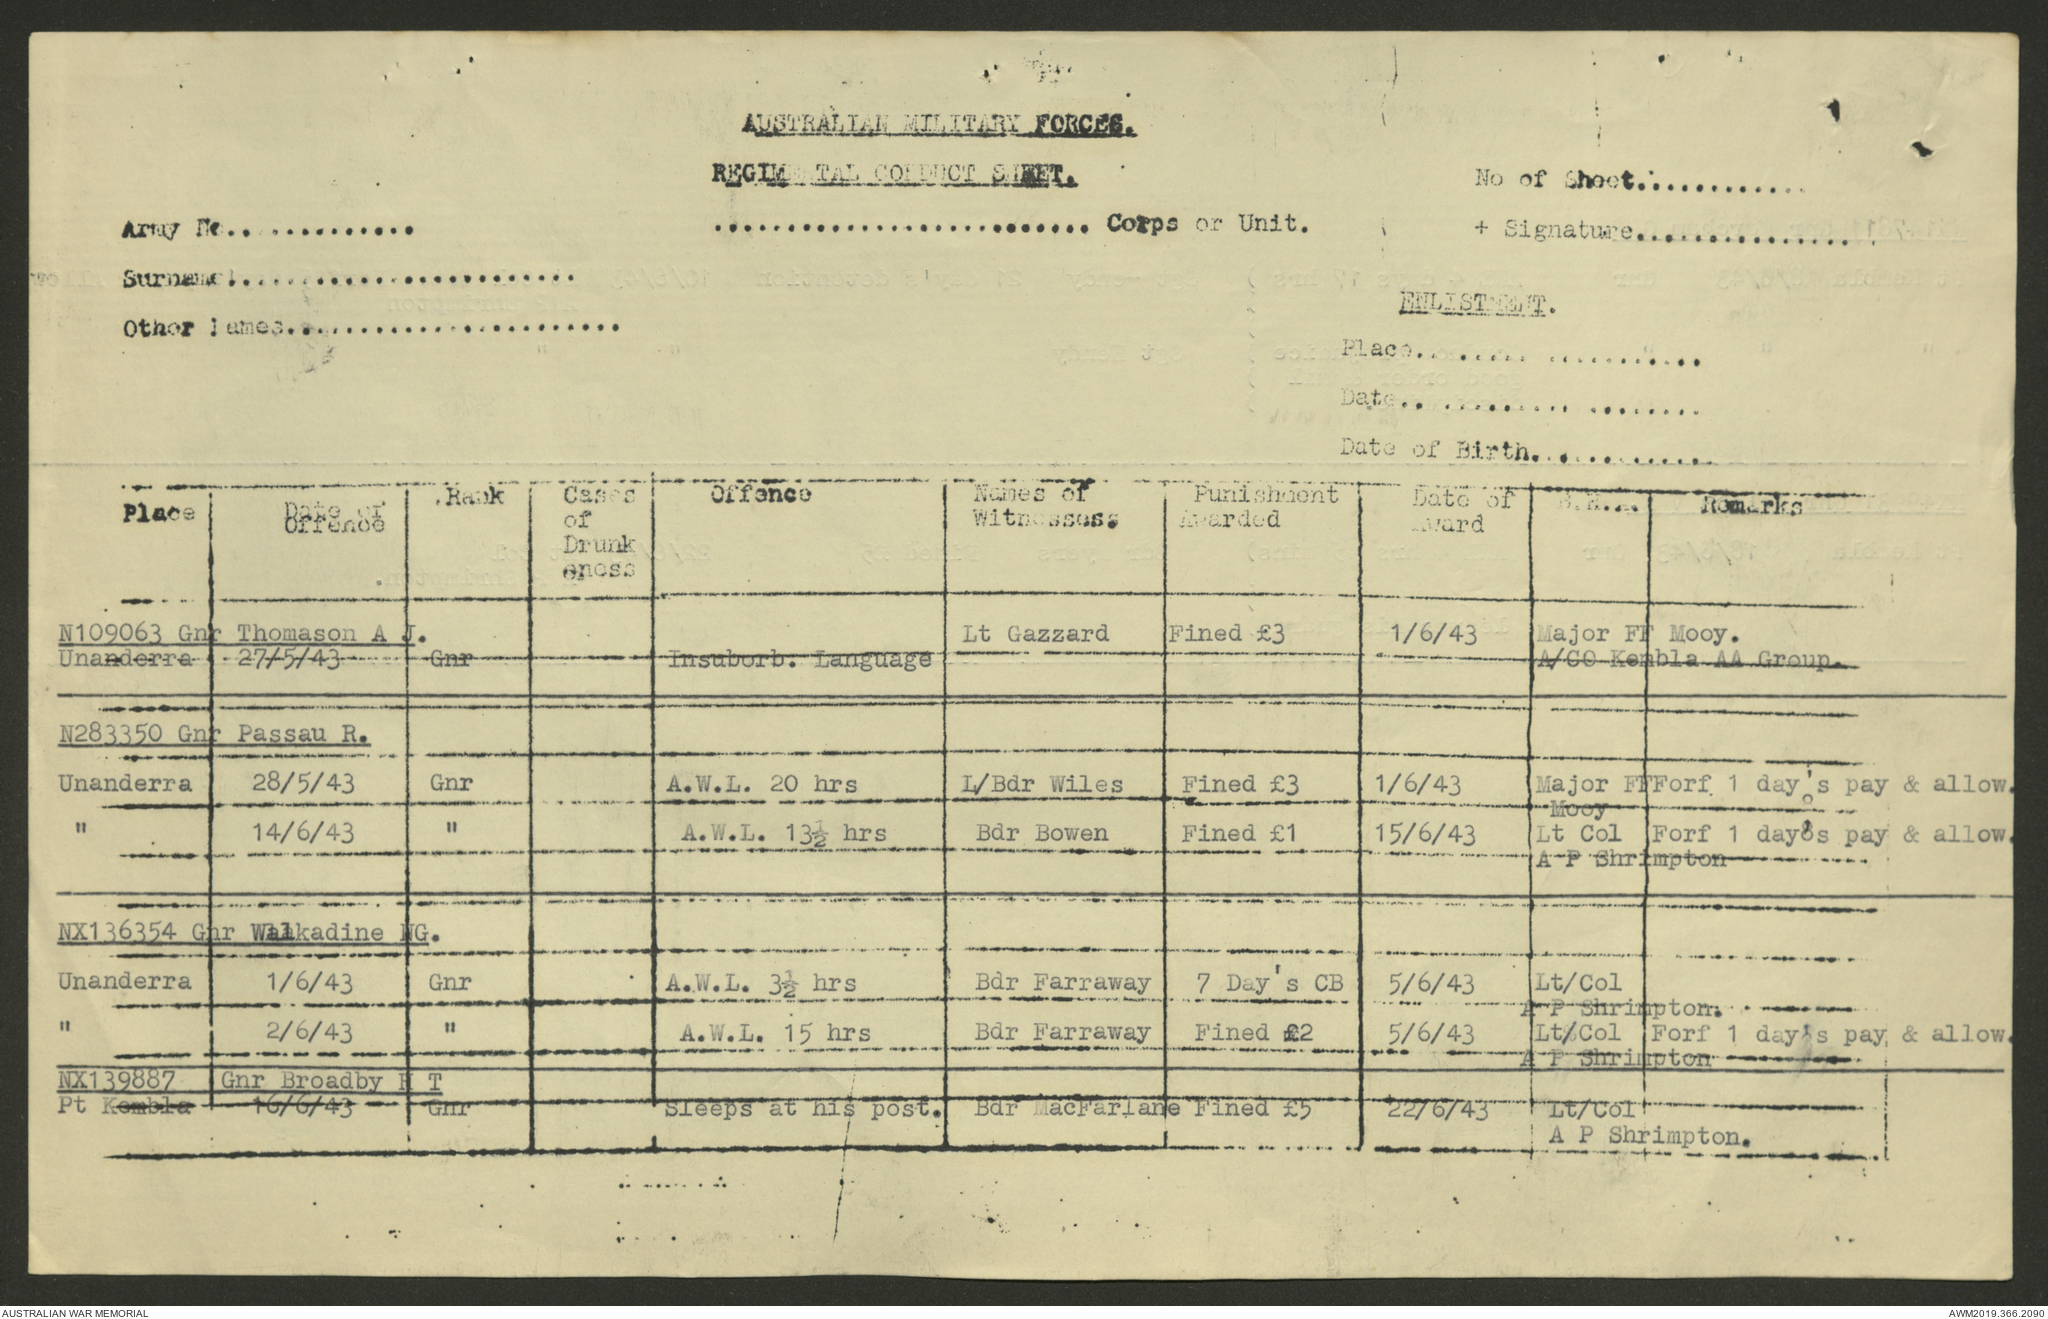 AUSTRALIAN MILITARY FORCES.
REGIMENTAL CONDUCT SHEET.
No of Sheet.............
Army No.............. .......................... Corps or Unit. + Signature.................
Surname........................
Other Names........................
ENLISTMENT.
Place....................
Date.....................
Date of Birth.............
Place Date of Offence Rank Cases of Drunkeness Offence Names of Witnesses. Punishment Awarded Date of Award Remarks
N109063 Gnr Thomason A J. Lt Gazzard Fined £3 1/6/43 Major FF Mooy.
Unanderra 27/5/43 Gnr Insuborb. Language A/CO Kembla AA Group.
N283350 Gnr Passau R.
Unanderra 28/5/43 Gnr A.W.L. 20 hrs L/Bdr Wiles Fined £3 1/6/43 Major FF Forf 1 day's pay & allow.
Mooy
" 14/6/43 " A.W.L. 13½ hrs Bdr Bowen Fined £1 15/6/43 Lt Col Forf 1 day's pay & allow.
A P Shrimpton
NX136354 Gnr Walkadine NG.
Unanderra 1/6/43 Gnr A.W.L. 3½ hrs Bdr Farraway 7 Day's CB 5/6/43 Lt/Col
A P Shrimpton.
" 2/6/43 " A.W.L. 15 hrs Bdr Farraway Fined £2 5/6/43 Lt/Col Forf 1 day's pay & allow.
A P Shrimpton
NX139887 Gnr Broadby T
Pt Kembla 16/6/43 Gnr Sleeps at his post. Bdr MacFarlane Fined £5 22/6/43 Lt/Col
A P Shrimpton.
AUSTRALIAN WAR MEMORIAL AWM2019.366.2090